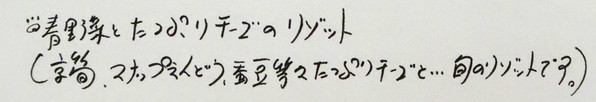 青野菜とたっぷりチーズのリゾット
(京筍、スナップえんどう、蚕豆等々たっぷりチーズと…旬のリゾットです。)